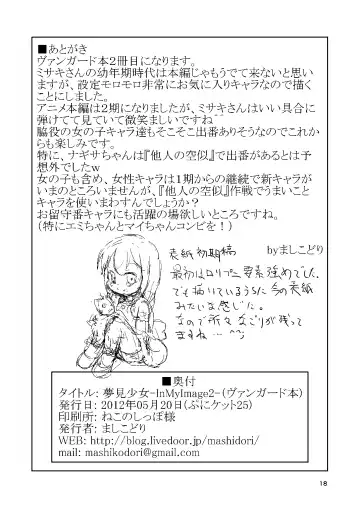 ■あとがき
ヴァンガード本2冊目になります。
ミサキさんの幼年期時代は本編じゃもうでて来ないと思い
ますが、設定モロモロ非常にお気に入りキャラなので描く
ことにしました。
アニメ本編は2期になりましたが、ミサキさんはいい具合に
弾けてて見ていて微笑ましいですね^^
脇役の女の子キャラ達もそこそこ出番ありそうなのでこれか
らも楽しみです。
特に、ナギサちゃんは『他人の空似』で出番があるとは予
想外でしたw
女の子も含め、女性キャラは1期からの継続で新キャラが
いまのところいませんが、『他人の空似』作戦でうまいこと
キャラを使いまわすんでしょうか?
お留守番キャラにも活躍の場欲しいところですね。
(特にエミちゃんとマイちゃんコンビを!)
byましこどり
表紙初期稿
最初はロリった要素強めでした。
でも描いているうちに今の表紙
みたいな感じに。
なので所々なごりが残って
ますね…^^;
■奥付
タイトル: 夢見少女-InMyImage2-(ヴァンガード本)
発行日: 2012年05月20日(ぷにケット25)
印刷所: ねこのしっぽ様
発行者: ましこどり
WEB: http://blog.livedoor.jp/mashidori/
mail: mashikodori@gmail.com
18